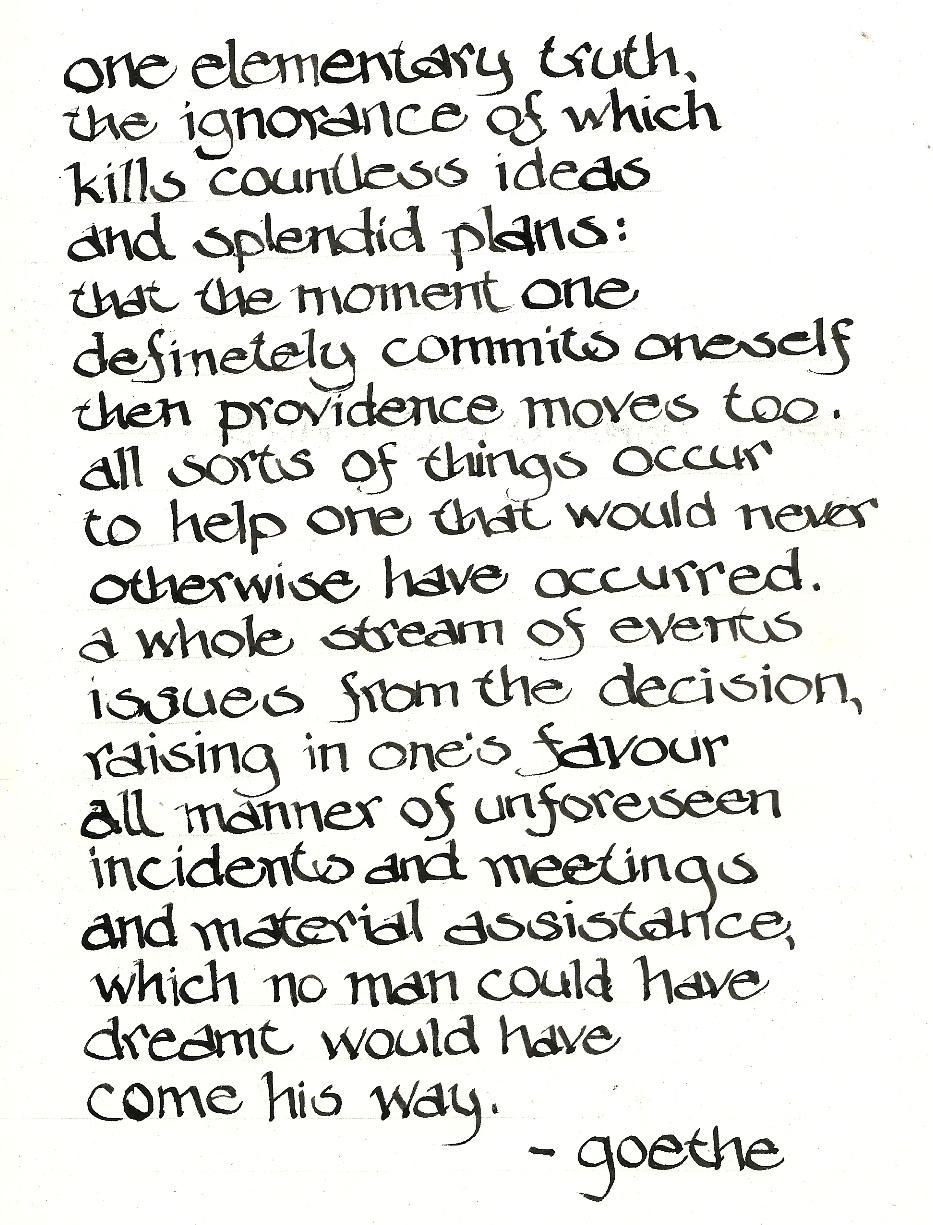 one elementary truth,
the ignorance of which
kills countless ideas
and splendid plans:
that the moment one
definetely commits oneself
then providence moves too.
all sorts of things occur
to help one that would never
otherwise have occurred.
a whole stream of events
issues from the decision,
raising in one's favour
all manner of unforeseen
incidents and meetings
and material assistance,
which no man could have
dreamt would have
come his way.
- goethe